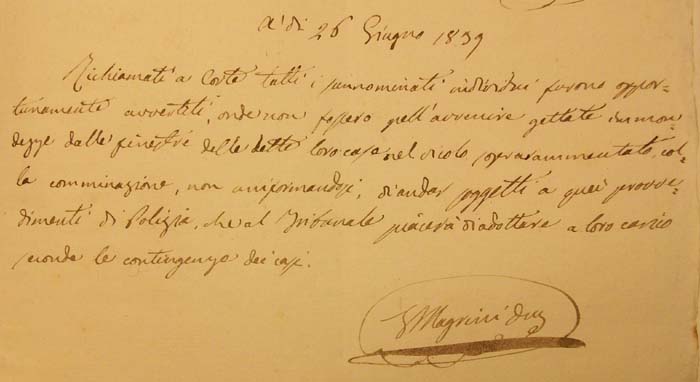 A' dì 26 Giugno 1839
Richiamati a Corte tutti i sunnominati individui furono oppor-
tunamente avvertiti, onde non fossero nell'avvenire gettate immon-
dezze dalle finestre delle dette loro case nel vicolo, soprarammentato, col-
la comminazione, non uniformandosi, di andar soggetti a quei provve-
dimenti di Polizia, che al Tribunale piacerà di adottare a loro carico
secondo le contingenze dei casi.
Magrini